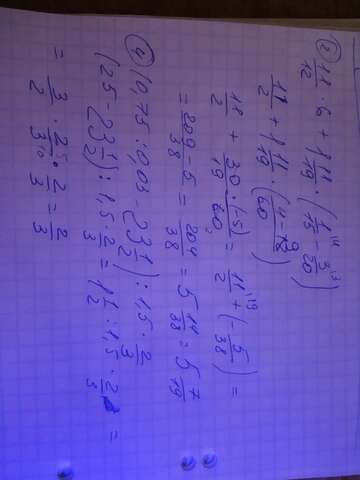 ② 11/12 · 6 + 1 11/19 · (1/15 - 3/20)
11/2 + 1 11/19 · (4 - 9/60)
11/2 + 30/19 · (-5)/60 = 11/2 + (-5/38) =
= 209 - 5/38 = 204/38 = 5 14/38 = 5 7/19
④ (0,75 : 0,03 - 23 1/2) : 1,5 · 2/3
(25 - 23 1/2) : 1,5 · 2/3 = 1 1/2 : 1,5 · 2/3 =
= 3/2 · 2/3 · 2/3 = 2/3